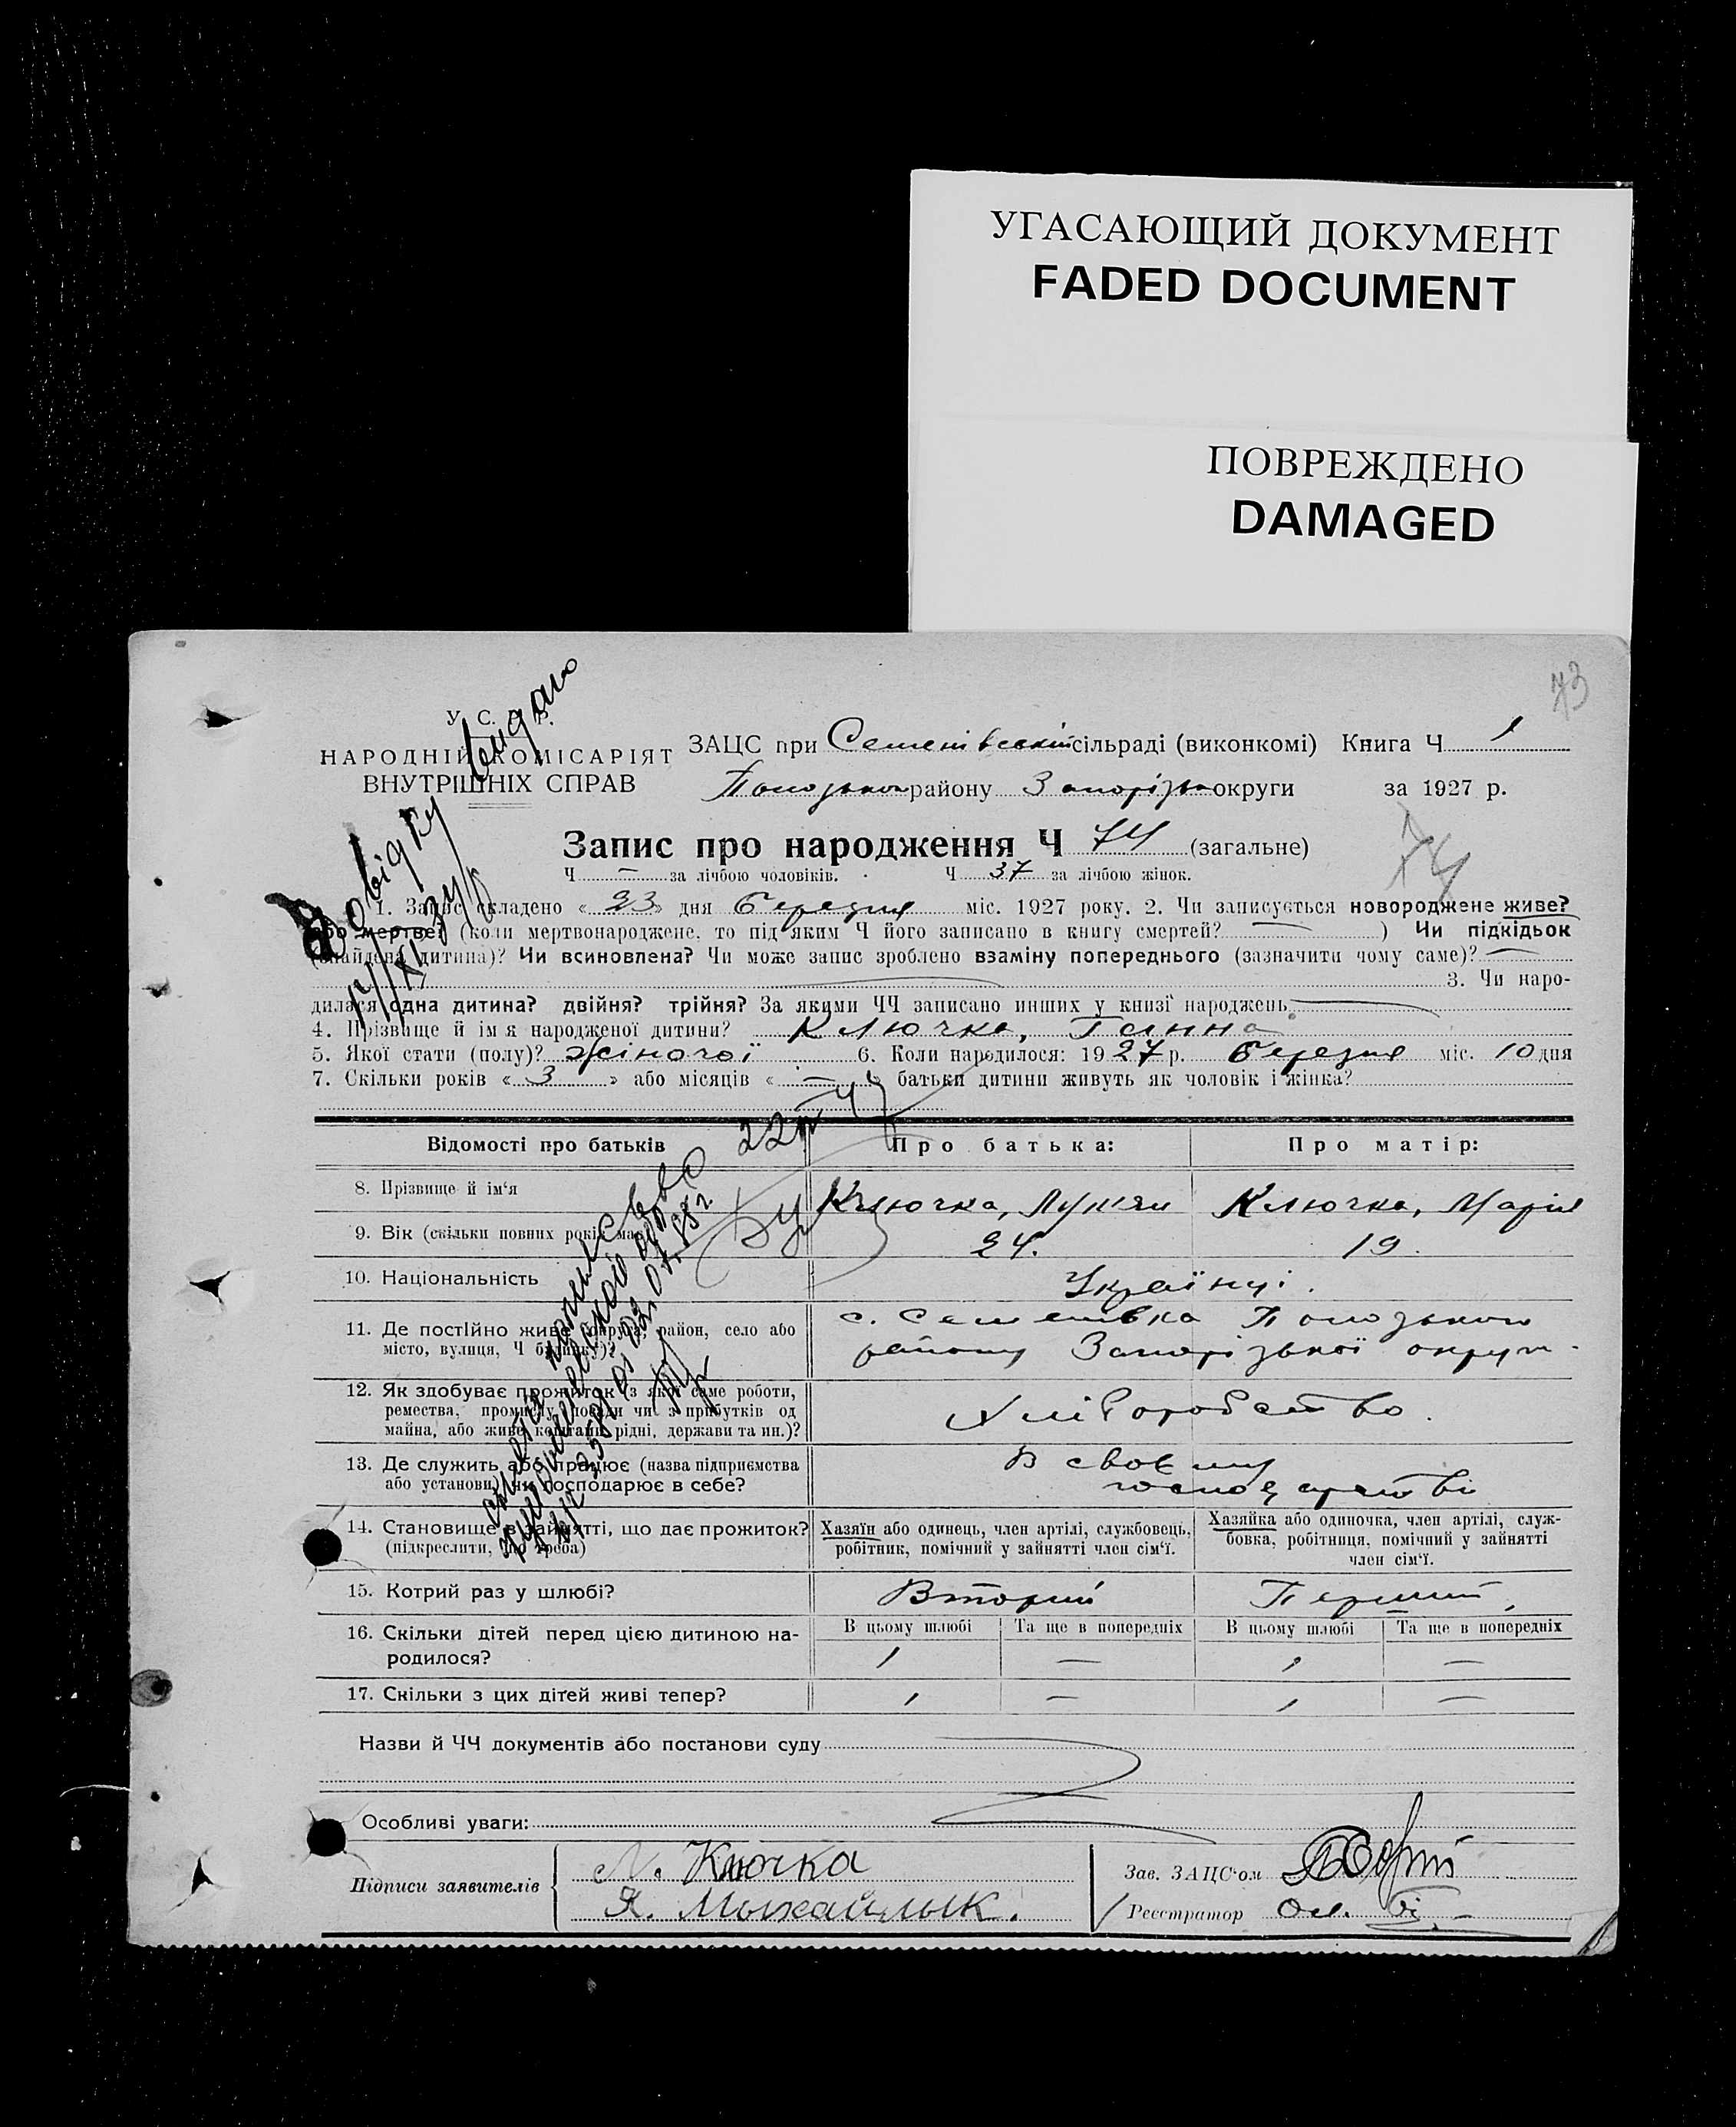 УГАСАЮЩИЙ ДОКУМЕНТ
FADED DOCUMENT
ПОВРЕЖДЕНО
DAMAGED
73
У. С. Р. Р.
НАРОДНІЙ КОМІСАРІЯТ
ВНУТРІШНІХ СПРАВ
ЗАЦС при Семенівській сільраді (виконкомі) Книга Ч 1
Пологського району Запорізької округи за 1927 р.
Довідку видано
Запис про народження Ч 74 (загальне)
74
Ч — за лічбою чоловіків. Ч 37 за лічбою жінок.
1. Запис складено « 23 » дня березня міс. 1927 року. 2. Чи записується новороджене живе?
або мертве? (коли мертвонароджене, то під яким Ч його записано в книгу смертей? — ) Чи підкідьок
(знайдена дитина)? Чи всиновлена? Чи може запис зроблено взаміну попереднього (зазначити чому саме)? —
3. Чи наро-
дилася одна дитина? двійня? трійня? За якими ЧЧ записано инших у книзі народжень
4. Прізвище й ім'я народженої дитини? Ключка, Ганна
5. Якої стати (полу)? жіночої 6. Коли народилося: 1927 р. березня міс. 10 дня
7. Скільки років « 3 » або місяців « — » батьки дитини живуть як чоловік і жінка?
Відомості про батьків Про батька: Про матір:
8. Прізвище й ім'я Ключка, Лук'ян Ключка, Марія
9. Вік (скільки повних років має) 24. 19.
10. Національність Українці.
11. Де постійно живе (округа, район, село або с. Семенівка Пологського
місто, вулиця, Ч будинку)? району Запорізької округи.
12. Як здобуває прожиток (з якої саме роботи,
ремества, промислу, посади чи з прибутків од Хліборобство.
майна, або живе коштами рідні, держави та ин.)?
13. Де служить або працює (назва підприємства В своєму
або установи), чи господарює в себе? господарстві
14. Становище в зайнятті, що дає прожиток? Хазяїн або одинець, член артілі, службовець, Хазяйка або одиночка, член артілі, служ-
(підкреслити, що треба) робітник, помічний у зайнятті член сім'ї. бовка, робітниця, помічний у зайнятті
член сім'ї.
15. Котрий раз у шлюбі? Вторий Перший,
16. Скільки дітей перед цією дитиною на- В цьому шлюбі Та ще в попередніх В цьому шлюбі Та ще в попередніх
родилося? 1 — 1 —
17. Скільки з цих дітей живі тепер? 1 — 1 —
Назви й ЧЧ документів або постанови суду
Особливі уваги:
Підписи заявителів Л. Ключка
Я. Михайлик.
Зав. ЗАЦС'ом
Реєстратор